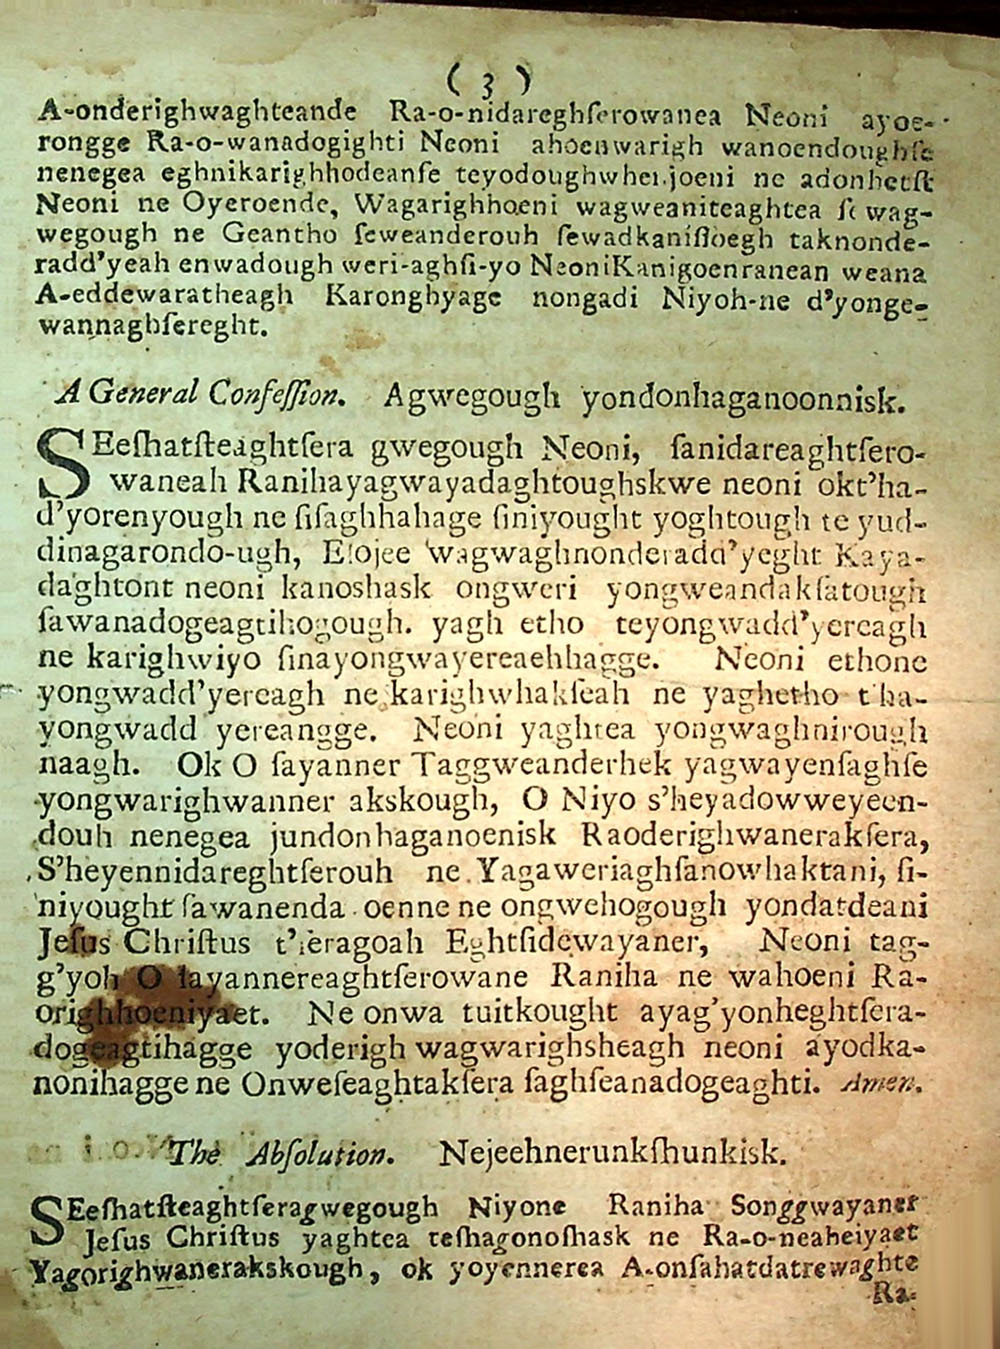 ( 3 )
A-onderighwaghteande Ra-o-nidareghſerowanea Neoni ayoe-
rongge Ra-o-wanadogighti Neoni ahoenwarigh wanoendoughſe
nenegea eghnikarighhodeanſe teyodoughwhei.joeni ne adonhetſt
Neoni ne Oyeroende, Wagarighhoeni wagweaniteaghtea ſe wag-
wegough ne Geantho ſeweanderouh ſewadkaniſſoegh taknonde-
radd'yeah enwadough weri-aghſi-yo Neoni Kanigoenranean weana
A-eddewaratheagh Karonghyage nongadi Niyoh-ne d'yonge-
wannaghſereght.
A General Confeſſion. Agwegough yondonhaganoonnisk.
SEeſhatſteaghtſera gwegough Neoni, ſanidareaghtſero-
waneah Ranihayagwayadaghtoughskwe neoni okt'ha-
d'yorenyough ne ſiſaghhahage ſiniyought yoghtough te yud-
dinagarondo-ugh, Elojee wagwaghnonderadd'yeght Kaya-
daghtont neoni kanoshask ongweri yongweandakſatough
ſawanadogeagtihogough. yagh etho teyongwadd'yereagh
ne karighwiyo ſinayongwayereaehhagge. Neoni ethone
yongwadd'yereagh ne karighwhakſeah ne yaghetho t'ha-
yongwadd'yereangge. Neoni yaghtea yongwaghnirough
naagh. Ok O ſayanner Taggweanderhek yagwayenſaghſe
yongwarighwanner akskough, O Niyo s'heyadowweyeen-
douh nenegea jundonhaganoenisk Raoderighwanerakſera,
S'heyennidareghtſerouh ne Yagaweriaghſanowhaktani, ſi-
niyought ſawanenda oenne ne ongwehogough yondatdeani
Jeſus Chriſtus t'ſeragoah Eghtſidewayaner, Neoni tag-
g'yoh O ſayannereaghtſerowane Raniha ne wahoeni Ra-
orighhoeniyaet. Ne onwa tuitkought ayag'yonheghtſera-
dogeagtihagge yoderigh wagwarighsheagh neoni ayodka-
nonihagge ne Onweſeaghtakſera ſaghſeanadogeaghti. Amen.
The Abſolution. Nejeehnerunkſhunkisk.
SEeſhatſteaghtſeragwegough Niyone Raniha Songgwayaner
Jeſus Chriſtus yaghtea teſhagonoſhask ne Ra-o-neaheiyaet
Yagorighwanerakskough, ok yoyennerea A-onſahatdatrewaghte
Ra-